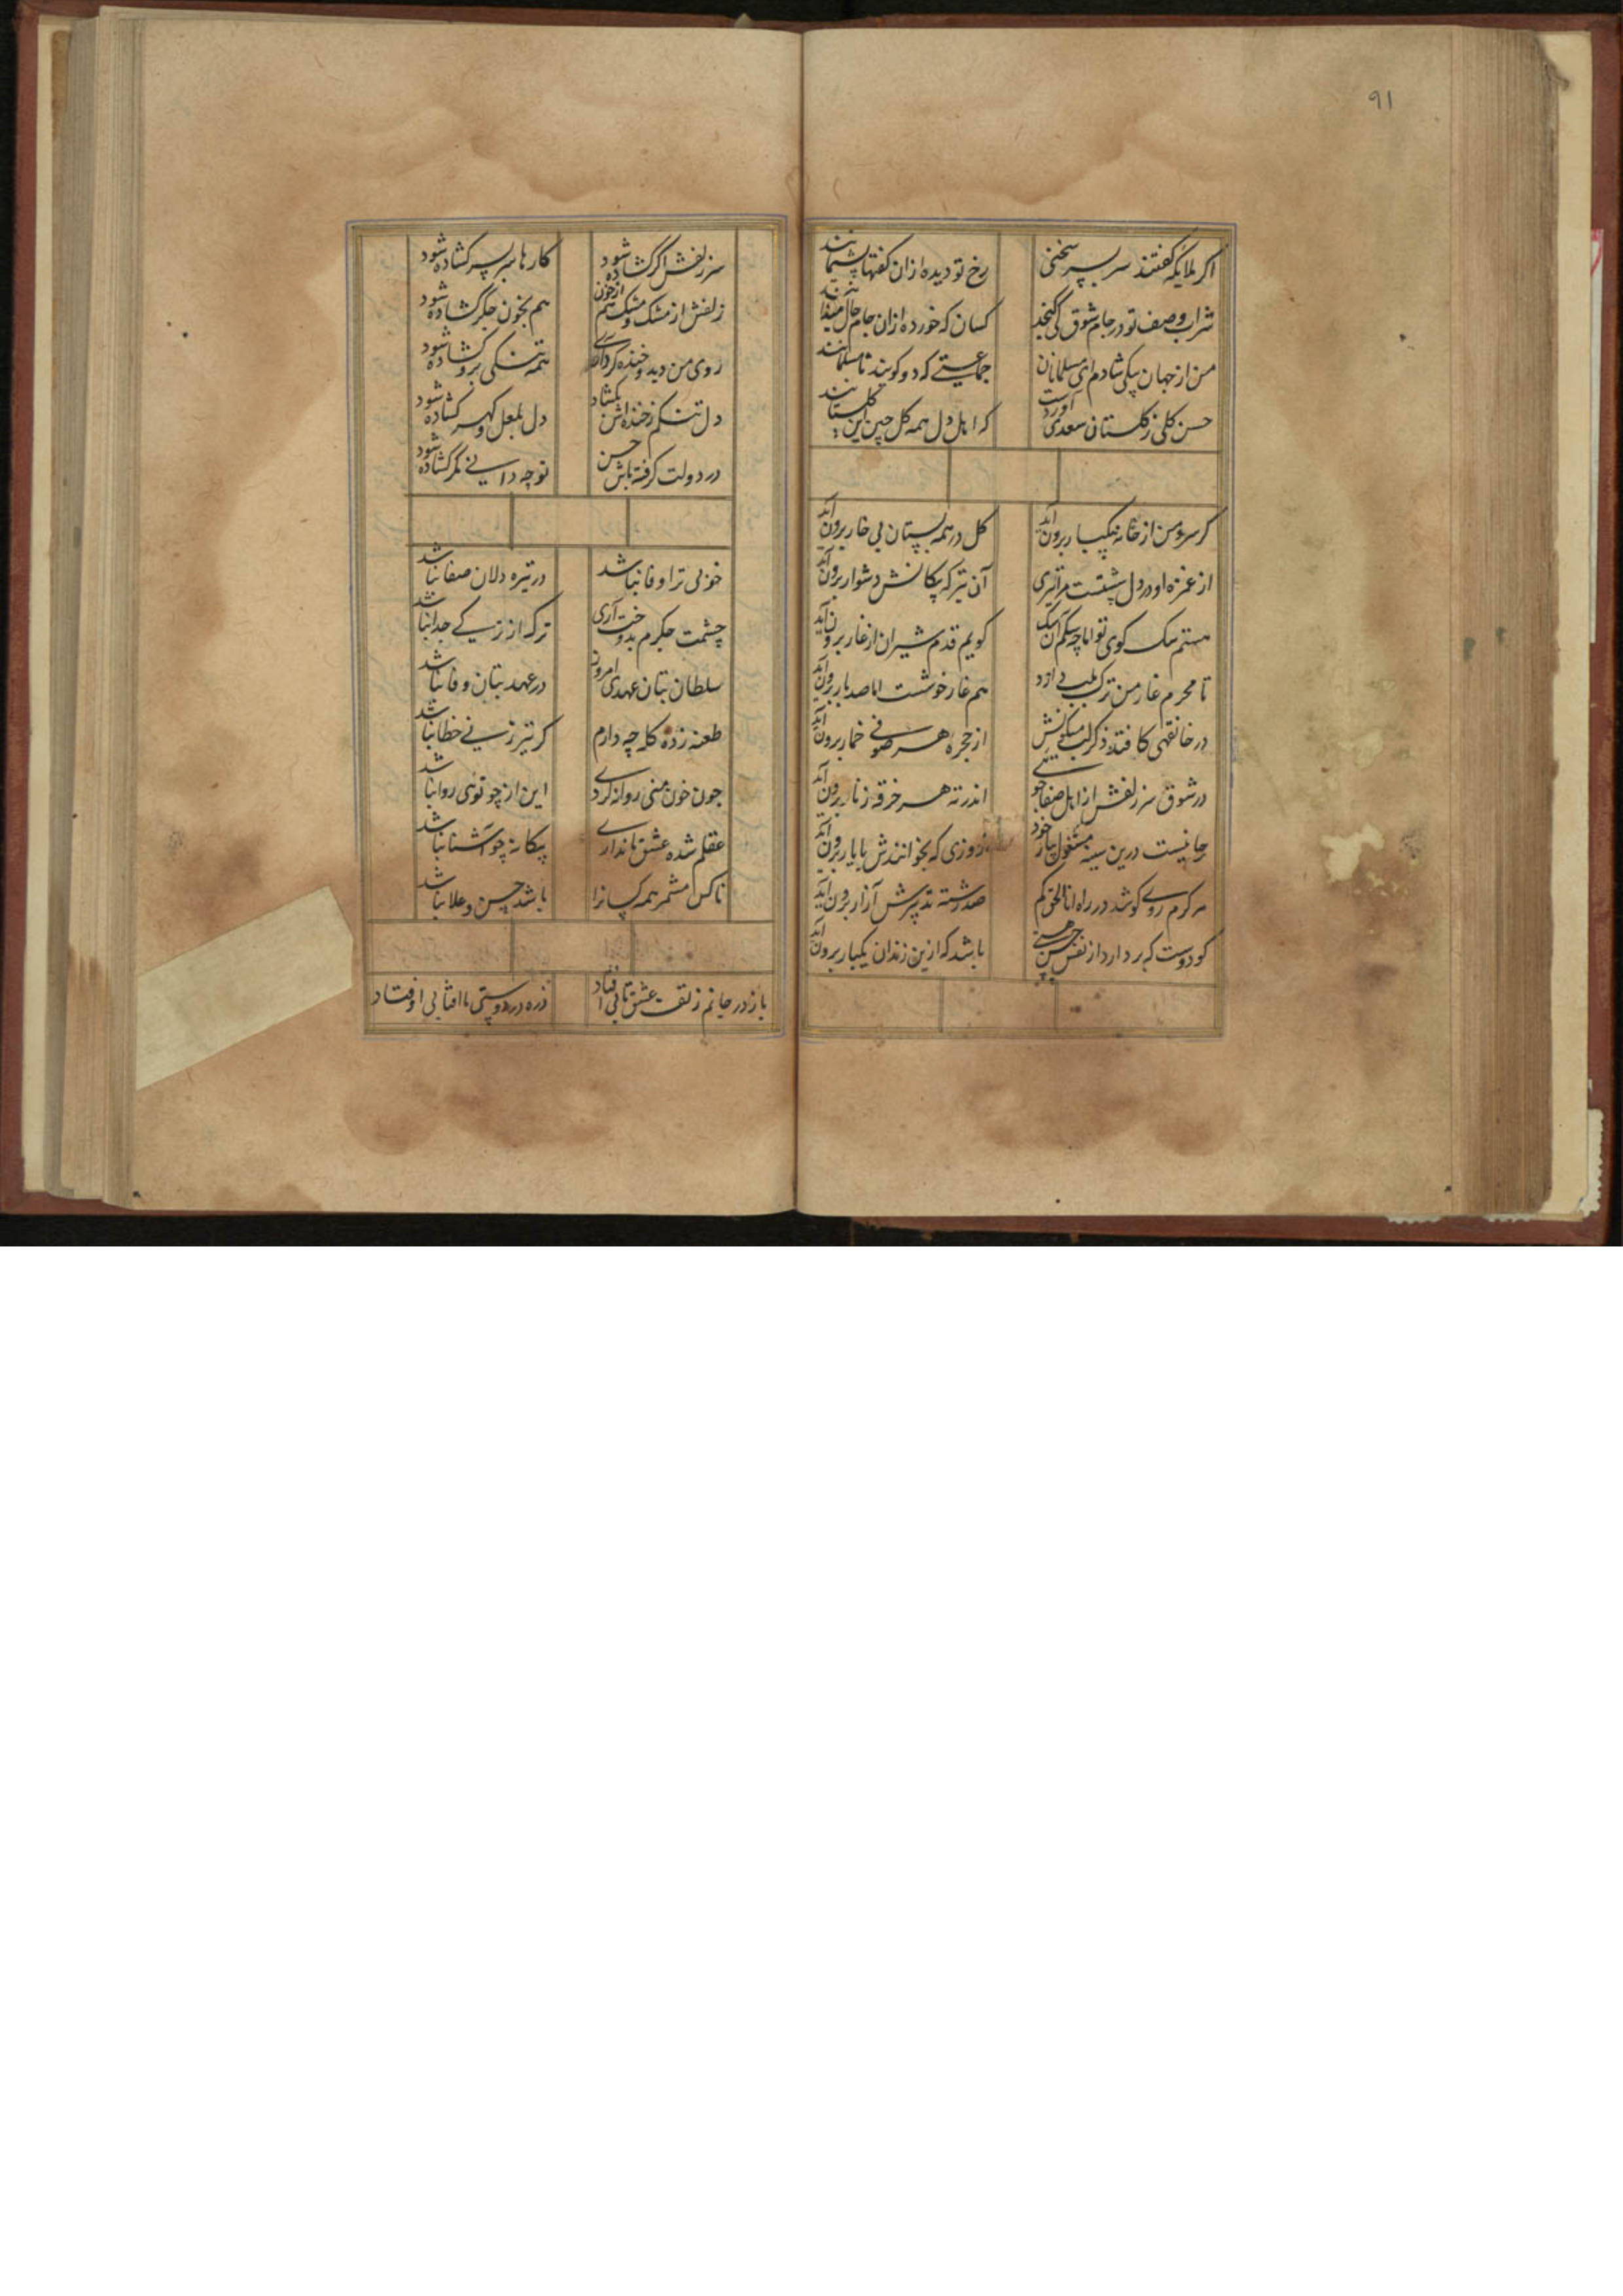 ۹۱
اکر ملایکه کفتند سر بسر سخنی
رخ تو دیده ازان کفتها پشیمانند
شراب وصف تو در جام شوق کی کنجد
کسان که خورده ازان جام حال میدانند
من از جهان بیکی شادم ای مسلمانان
جماعتی که دو کویند نامسلمانند
حسن کلی ز کلستان سعدی آوردست
که اهل دل همه کل چین این کلستانند
کر سرو من از خانه بیکبار برون آید
کل در همه بستان بی خار برون آید
از غمزه او در دل تیری
آن تیر که پیکانش دشوار برون آید
هستم سک کوی تو اما چو سکم
کویم قدم شیران از غار برون آید
تا محرم غار من ترک دارد
هم غار خوشست اما صد بار برون آید
در خانقهی کافتد ذکر لب میکونش
از حجره هر صوفی خمار برون آید
در شوق سر زلفش از اهل صفا جوشی
اندر ته هر خرقه زنار برون آید
جانیست درین سینه مشغول بیار خود
روزی که بخوانندش با یار برون آید
هر کرم روی کوشد در راه انا الحق کم
صد رشته آزار برون آید
کو دوست که بردارد از نفس حسن
باشد که ازین زندان یکبار برون آید
سر زلفش اکر کشاده شود
کارها سر بسر کشاده شود
زلفش از مشک و مشک هم از خون
هم بخون جکر کشاده شود
روی من دید و خنده کرد آری
همه تنکی برو کشاده شود
دل تنکم ز خنده اش بکشاد
دل بلعل و کهر کشاده شود
در دولت کرفته باش حسن
تو چه دانی مکر کشاده شود
خوبی ترا وفا نباشد
در تیره دلان صفا نباشد
چشمت جکرم بدوخت آری
ترک از زنی کی جدا نباشد
سلطان بتان عهدی امروز
در عهد بتان وفا نباشد
طعنه زده کله چه دارم
کر تیر زنی خطا نباشد
چون خون منی روانه کردی
این از چو توئی روا نباشد
عقلم شده عشق ما نداری
بیکانه چو آشنا نباشد
ناکس مشمر همه کسانرا
باشد حسن و علا نباشد
باز در جانم ز عشق تابی اوفتاد
ذره در دوستی با افتابی اوفتاد